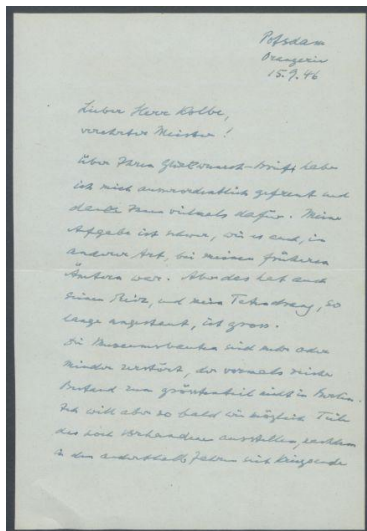 Potsdam
Orangerie
15.9.46
Lieber Herr Kolbe,
verehrter Meister!
Über Ihren Glückwunsch-Brief habe
ich mich ausserordentlich gefreut und
danke Ihnen vielmals dafür. Meine
Aufgabe ist schwer, wie es auch, in
anderer Art, bei meinen früheren
Ämtern war. Aber das hat auch
seinen Reiz, und mein Tatendrang, so
lange angestaut, ist gross.
Die Museumsbauten sind mehr oder
minder zerstört, der vormals reiche
Bestand zum grössten Teil nicht in Berlin.
Ich will aber so bald wie möglich Teile
des noch Vorhandenen ausstellen, nachdem
in den anderthalb Jahren seit Kriegsende